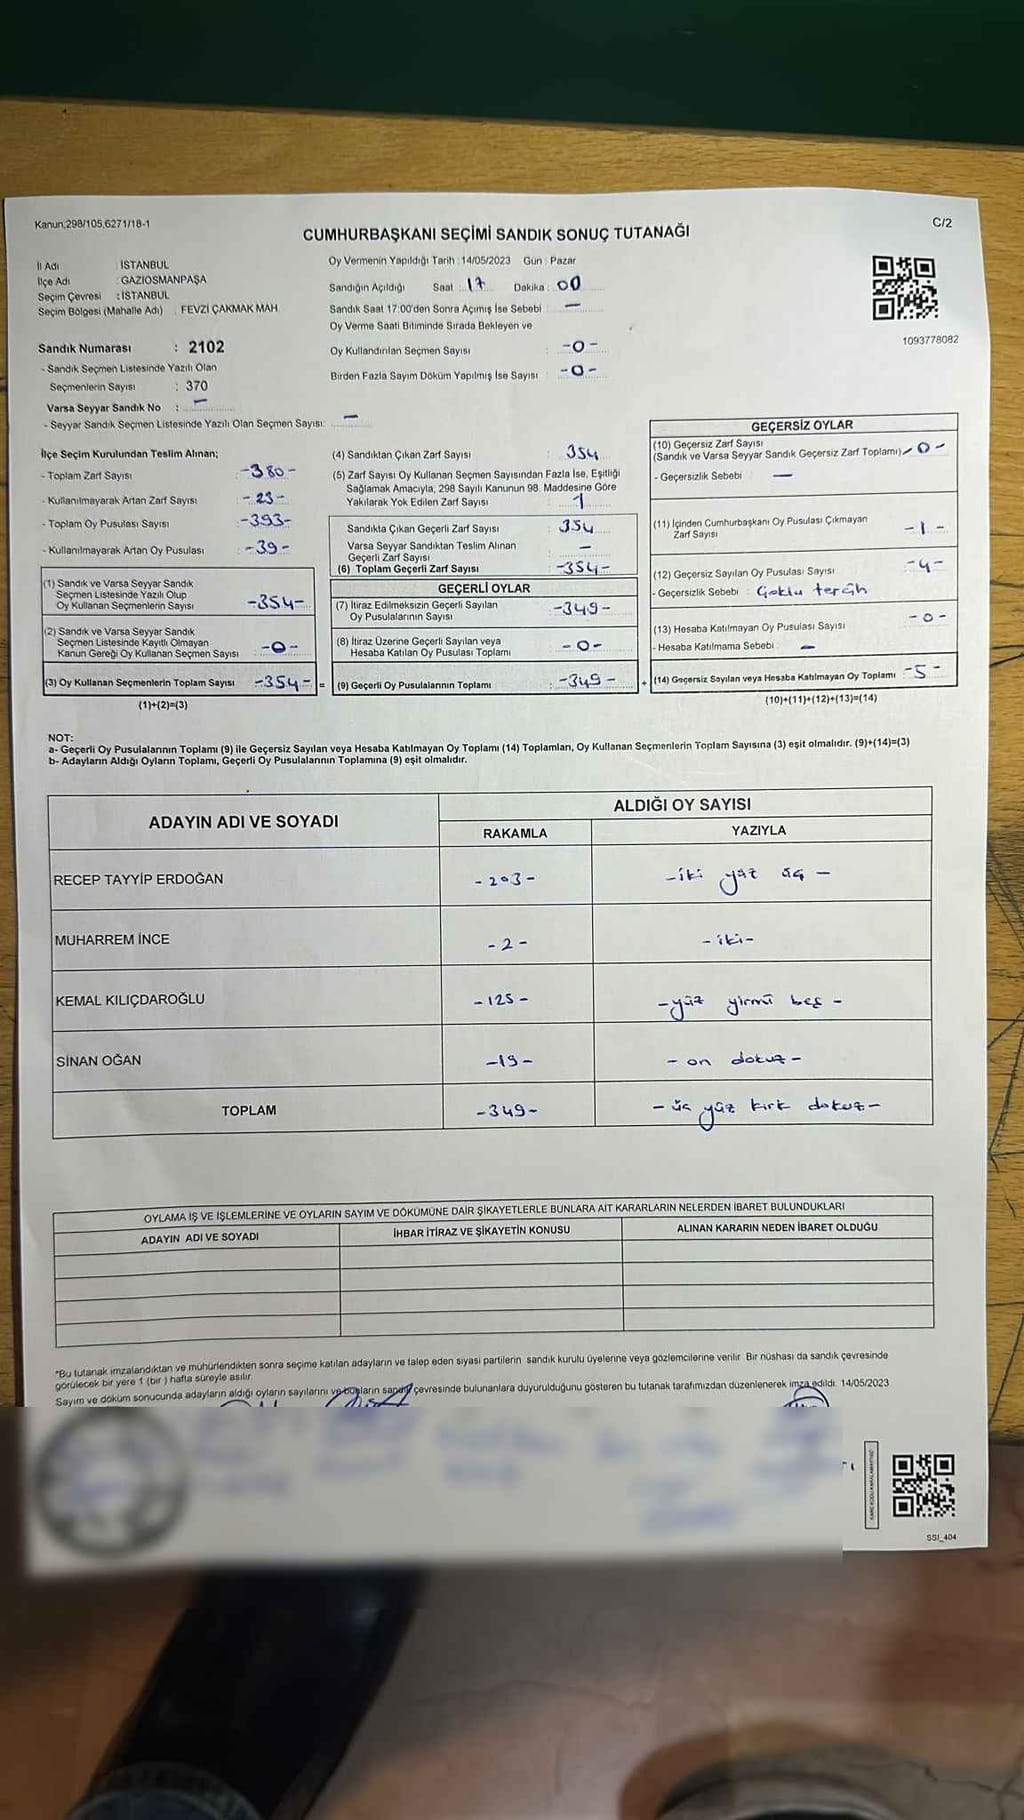 Kanun,298/105,6271/18-1
C/2
CUMHURBAŞKANI SEÇİMİ SANDIK SONUÇ TUTANAĞI
İl Adı : İSTANBUL
İlçe Adı : GAZİOSMANPAŞA
Seçim Çevresi : İSTANBUL
Seçim Bölgesi (Mahalle Adı) : FEVZİ ÇAKMAK MAH
Sandık Numarası : 2102
- Sandık Seçmen Listesinde Yazılı Olan
Seçmenlerin Sayısı : 370
Varsa Seyyar Sandık No : —
- Seyyar Sandık Seçmen Listesinde Yazılı Olan Seçmen Sayısı: —
Oy Vermenin Yapıldığı Tarih : 14/05/2023 Gün : Pazar
Sandığın Açıldığı Saat : 17 Dakika : 00
Sandık Saat 17:00'den Sonra Açımış İse Sebebi : —
Oy Verme Saati Bitiminde Sırada Bekleyen ve
Oy Kullandırılan Seçmen Sayısı : -0-
Birden Fazla Sayım Döküm Yapılmış İse Sayısı : -0-
1093778082
İlçe Seçim Kurulundan Teslim Alınan;
- Toplam Zarf Sayısı : -380-
- Kullanılmayarak Artan Zarf Sayısı : -23-
- Toplam Oy Pusulası Sayısı : -393-
- Kullanılmayarak Artan Oy Pusulası : -39-
(1) Sandık ve Varsa Seyyar Sandık
Seçmen Listesinde Yazılı Olup
Oy Kullanan Seçmenlerin Sayısı -354-
(2) Sandık ve Varsa Seyyar Sandık
Seçmen Listesinde Kayıtlı Olmayan
Kanun Gereği Oy Kullanan Seçmen Sayısı -0-
(3) Oy Kullanan Seçmenlerin Toplam Sayısı -354- =
(1)+(2)=(3)
(4) Sandıktan Çıkan Zarf Sayısı : 354
(5) Zarf Sayısı Oy Kullanan Seçmen Sayısından Fazla İse, Eşitliği
Sağlamak Amacıyla, 298 Sayılı Kanunun 98. Maddesine Göre
Yakılarak Yok Edilen Zarf Sayısı
Sandıkta Çıkan Geçerli Zarf Sayısı : 354
Varsa Seyyar Sandıktan Teslim Alınan
Geçerli Zarf Sayısı : —
(6) Toplam Geçerli Zarf Sayısı : -354-
GEÇERLİ OYLAR
(7) İtiraz Edilmeksizin Geçerli Sayılan
Oy Pusulalarının Sayısı : -349-
(8) İtiraz Üzerine Geçerli Sayılan veya
Hesaba Katılan Oy Pusulası Toplamı : -0-
(9) Geçerli Oy Pusulalarının Toplamı : -349- +
GEÇERSİZ OYLAR
(10) Geçersiz Zarf Sayısı
(Sandık ve Varsa Seyyar Sandık Geçersiz Zarf Toplamı) -0-
- Geçersizlik Sebebi : —
(11) İçinden Cumhurbaşkanı Oy Pusulası Çıkmayan
Zarf Sayısı -1-
(12) Geçersiz Sayılan Oy Pusulası Sayısı -4-
- Geçersizlik Sebebi : Çoklu tercih
(13) Hesaba Katılmayan Oy Pusulası Sayısı -0-
- Hesaba Katılmama Sebebi : —
(14) Geçersiz Sayılan veya Hesaba Katılmayan Oy Toplamı -5-
(10)+(11)+(12)+(13)=(14)
NOT:
a- Geçerli Oy Pusulalarının Toplamı (9) ile Geçersiz Sayılan veya Hesaba Katılmayan Oy Toplamı (14) Toplamları, Oy Kullanan Seçmenlerin Toplam Sayısına (3) eşit olmalıdır. (9)+(14)=(3)
b- Adayların Aldığı Oyların Toplamı, Geçerli Oy Pusulalarının Toplamına (9) eşit olmalıdır.
ADAYIN ADI VE SOYADI
ALDIĞI OY SAYISI
RAKAMLA YAZIYLA
RECEP TAYYİP ERDOĞAN -203- -iki yüz üç-
MUHARREM İNCE -2- -iki-
KEMAL KILIÇDAROĞLU -125- -yüz yirmi beş-
SİNAN OĞAN -19- -on dokuz-
TOPLAM -349- -üç yüz kırk dokuz-
OYLAMA İŞ VE İŞLEMLERİNE VE OYLARIN SAYIM VE DÖKÜMÜNE DAİR ŞİKAYETLERLE BUNLARA AİT KARARLARIN NELERDEN İBARET BULUNDUKLARI
ADAYIN ADI VE SOYADI İHBAR İTİRAZ VE ŞİKAYETİN KONUSU ALINAN KARARIN NEDEN İBARET OLDUĞU
*Bu tutanak imzalandıktan ve mühürlendikten sonra seçime katılan adayların ve talep eden siyasi partilerin sandık kurulu üyelerine veya gözlemcilerine verilir. Bir nüshası da sandık çevresinde
görülecek bir yere 1 (bir) hafta süreyle asılır.
Sayım ve döküm sonucunda adayların aldığı oyların sayılarını ve bunların sandık çevresinde bulunanlara duyurulduğunu gösteren bu tutanak tarafımızdan düzenlenerek imza edildi. 14/05/2023
SSI_404